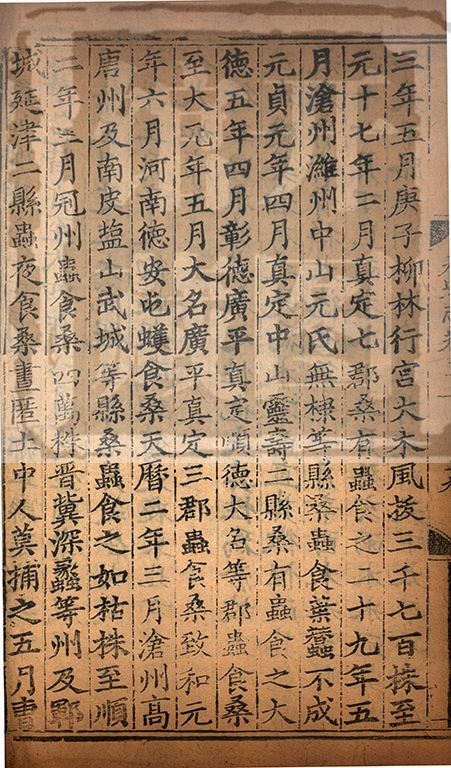 三年五月庚子柳林行宮大木風拔三千七百株至
元十七年二月真定七郡桑有蟲食之二十九年五
月滄州濰州中山元氏無棣等縣桑蟲食葉蠶不成
元貞元年四月真定中山靈壽二縣桑有蟲食之大
德五年四月彰德廣平真定順德大名等郡蟲食桑
至大元年五月大名廣平真定三郡蟲食桑致和元
年六月河南德安屯蠖食桑天曆二年三月滄州高
唐州及南皮塩山武城等縣桑蟲食之如枯株至順
二年三月冠州蟲食桑四萬株晉冀深蠡等州及鄆
城延津二縣蟲夜食桑晝匿土中人莫捕之五月曹